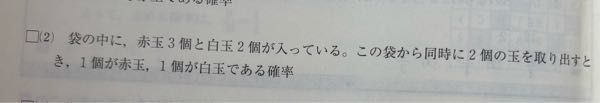 である確率
□(2) 袋の中に，赤玉3個と白玉2個が入っている。この袋から同時に2個の玉を取り出すと
き，1個が赤玉，1個が白玉である確率